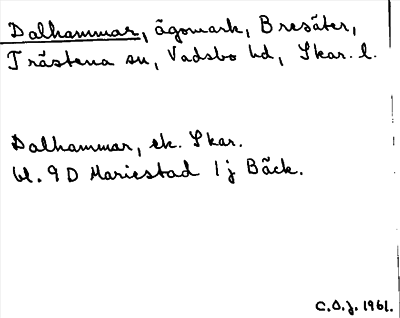 Dalhammar, ägomark, Bresäter,
Trästena sn, Vadsbo hd, Skar. l.
Dalhammar, ek. Skar.
bl. 9 D Mariestad 1 j Bäck.
C.O.J. 1961.